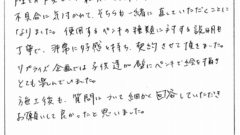 不具合に気付かれて、そちらも一緒に直していただくことに
なりました。使用するペンキの種類に対する説明も
丁寧で、非常に好感を持ち、契約させて頂きました。
サプライズ企画では子供達が壁にペンキで絵を描き
とても喜んでいました。
施工後も、質問について細かく回答していただき
お願いして良かったと思いました。